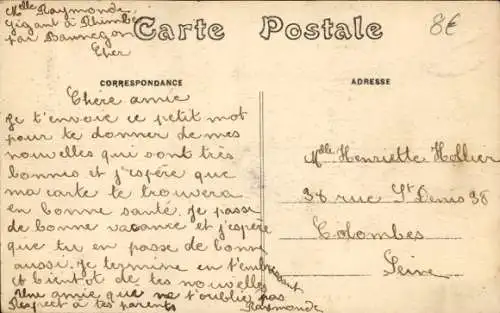 Mlle Raymonde
Gigant à Rhimbé
par Bannegon
Cher
Carte Postale
8€
CORRESPONDANCE
ADRESSE
Chère amie
Je t'envoie ce petit mot
pour te donner de mes
nouvelles qui sont très
bonnes et j'espère que
ma carte te trouvera
en bonne santé. Je passe
de bonne vacance et j'espère
que tu en passe de bonne
aussi. Je termine en t'embrassant
et bientôt de tes nouvelles
Une amie que ne t'oublie pas
Respect à tes parents Raymonde
Mlle Henriette Hollier
38 rue St Denis 38
Colombes
Seine